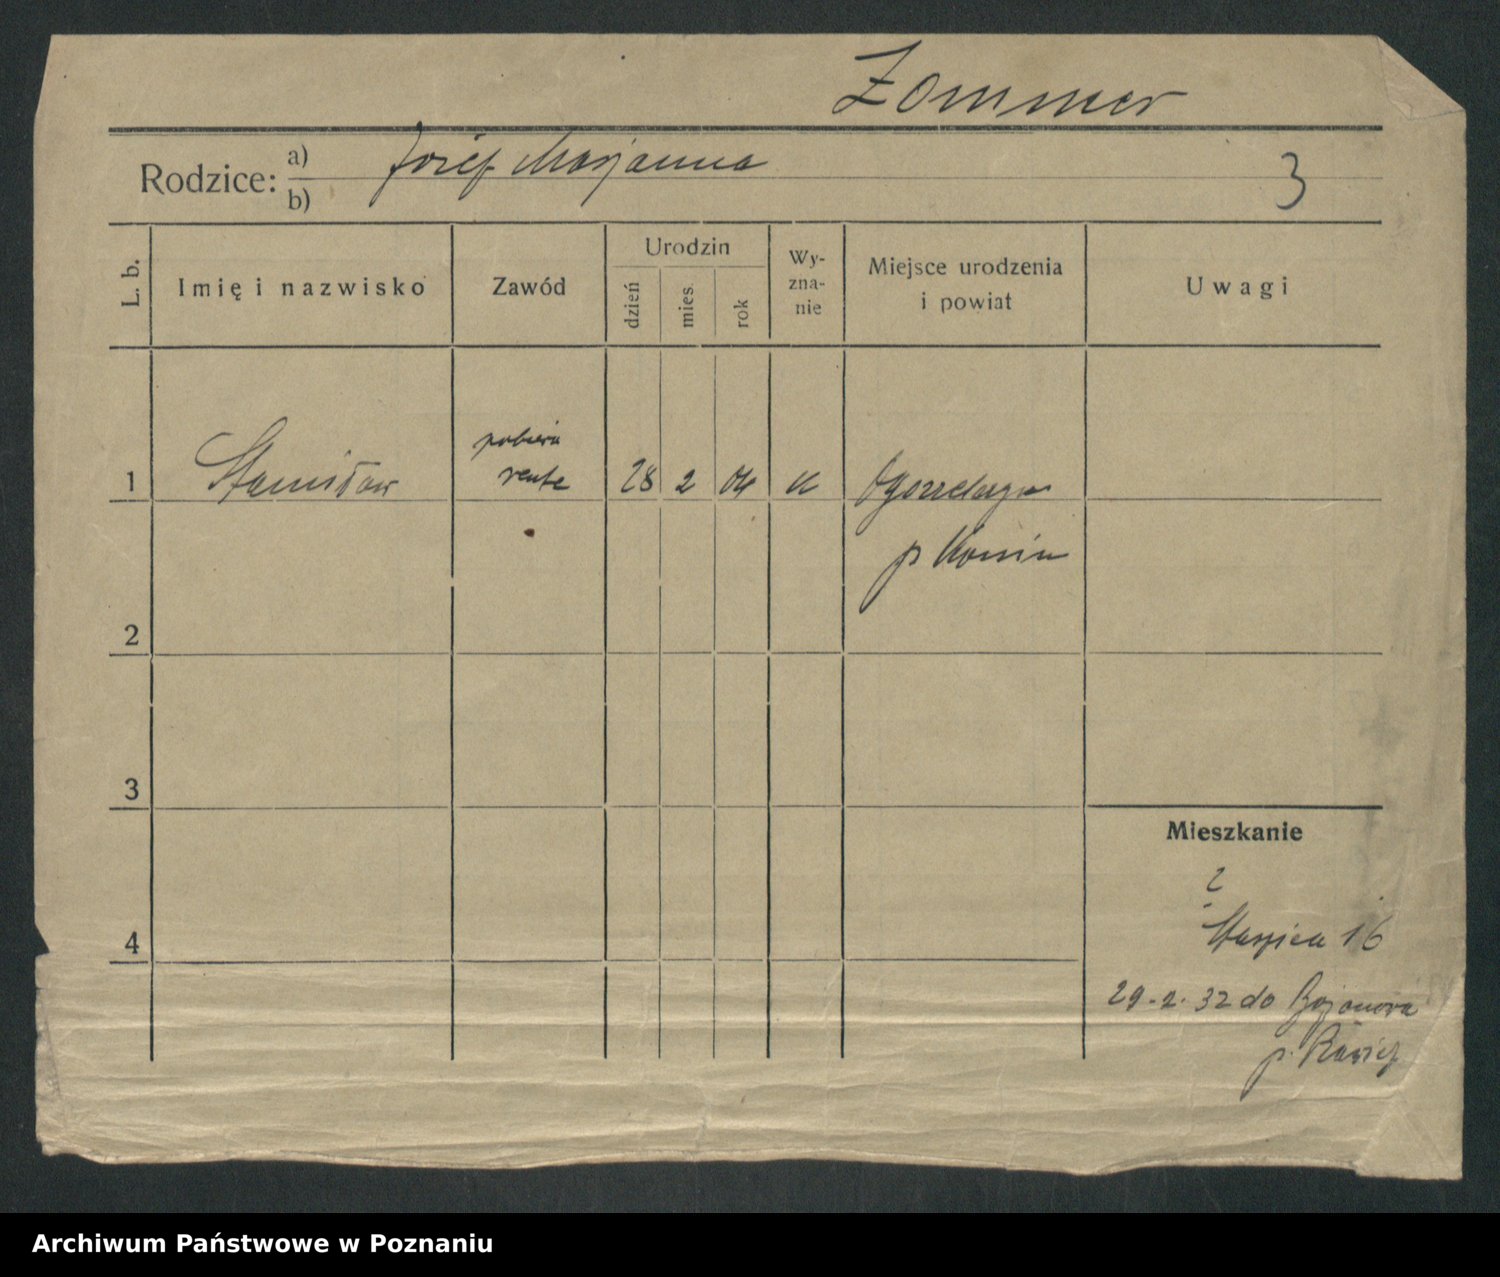 Zommer
Rodzice: a) Józef Marjanna
b)
3
L. b. Imię i nazwisko Zawód Urodzin dzień mies. rok Wy-zna-nie Miejsce urodzenia i powiat Uwagi
pobiera
1 Stanisław rentę 28 2 04
p Konin
2
3
Mieszkanie
4
Staszica 16
29-2-32 do Bojanowa
p. Rawicz
Archiwum Państwowe w Poznaniu